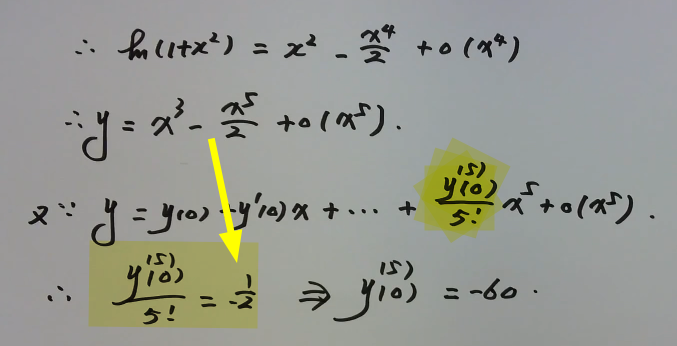 ∴ ln(1+x²) = x² - x⁴/2 + o(x⁴)
∴ y = x³ - x⁵/2 + o(x⁵).
又∵ y = y(0) + y'(0)x + ... + y⁽⁵⁾(0)/5! x⁵ + o(x⁵).
∴ y⁽⁵⁾(0)/5! = -1/2 ⇒ y⁽⁵⁾(0) = -60.